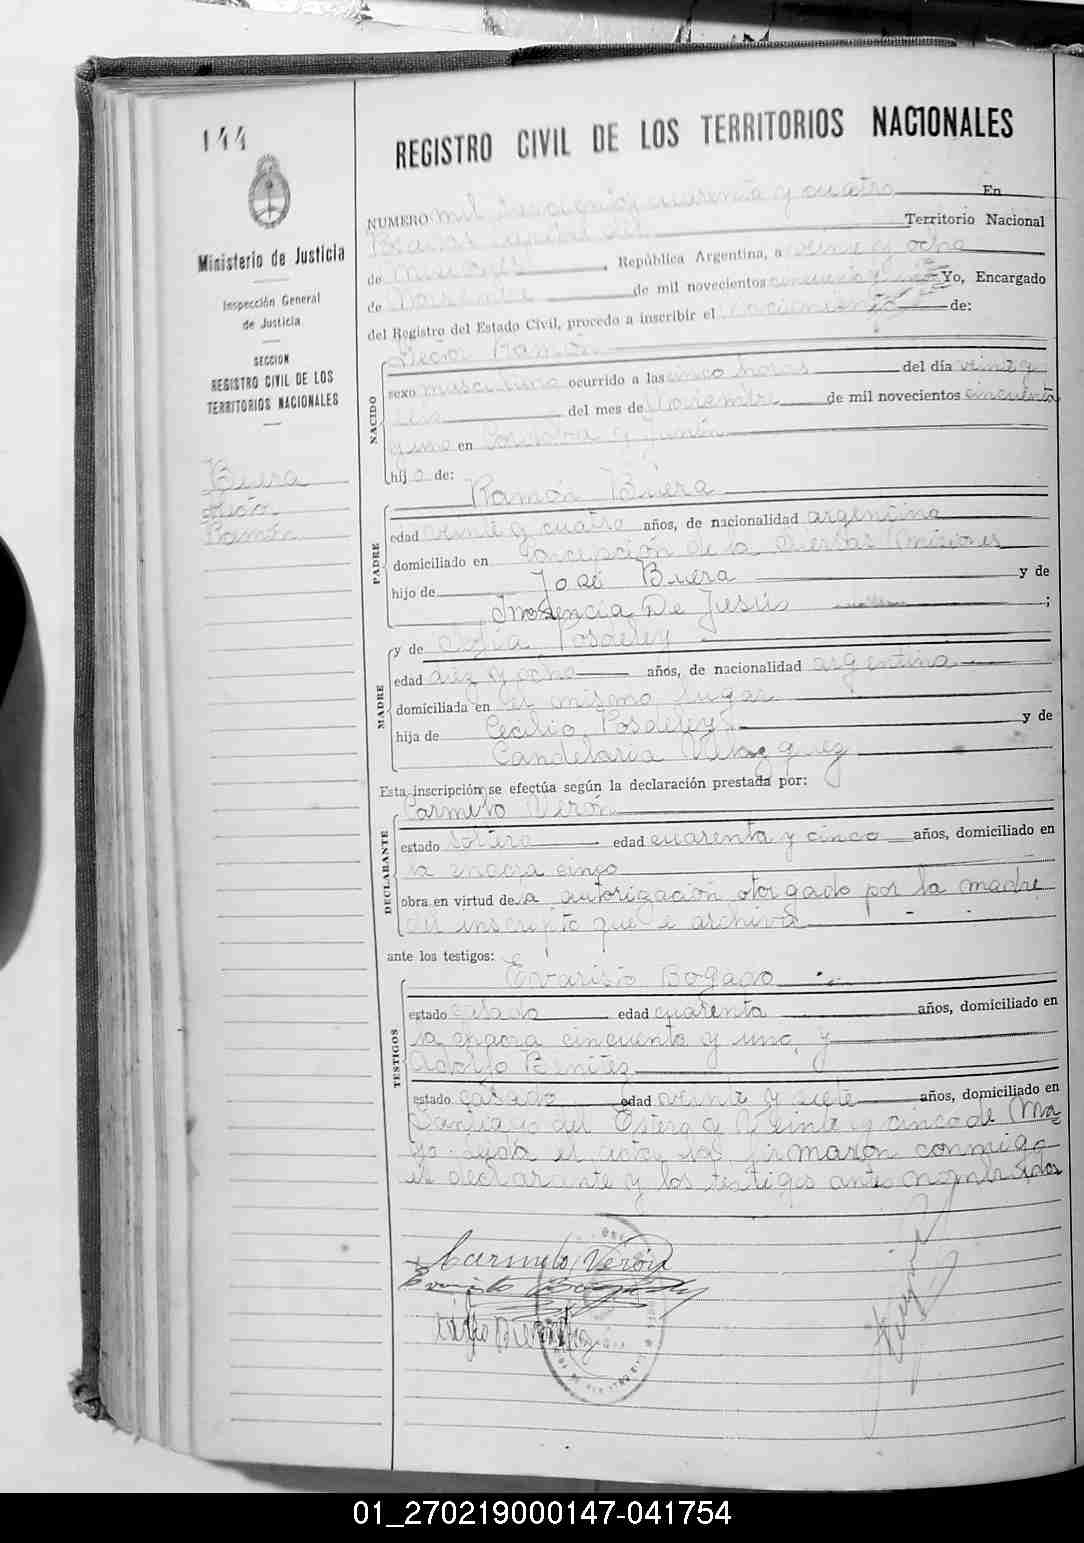 144
Ministerio de Justicia
Inspección General
de Justicia
SECCION
REGISTRO CIVIL DE LOS
TERRITORIOS NACIONALES
Buera
Ramón
REGISTRO CIVIL DE LOS TERRITORIOS NACIONALES
NUMERO mil cuarenta y cuatro En
Posadas capital del Territorio Nacional
de Misiones, República Argentina, a veinte y ocho
de Noviembre de mil novecientos cincuenta y uno Yo, Encargado
del Registro del Estado Civil, procedo a inscribir el nacimiento de:
Ramón
NACIDO
sexo masculino ocurrido a las cinco horas del día veinte y
seis del mes de Noviembre de mil novecientos cincuenta
y uno en Cordoba y Junín
hijo de:
Ramón Buera
PADRE
edad veinte y cuatro años, de nacionalidad argentina
domiciliado en Concepción de la Sierra Misiones
hijo de José Buera y de
Inosencia De Jesús ;
y de Posdeley
MADRE
edad diez y ocho años, de nacionalidad argentina
domiciliada en el mismo lugar
hija de Cecilio Posdeley y de
Candelaria Velazquez
Esta inscripción se efectúa según la declaración prestada por:
Carmelo Verón
DECLARANTE
estado soltero edad cuarenta y cinco años, domiciliado en
la chacra cinco
obra en virtud de la autorización otorgado por la madre
del inscripto que se archiva
ante los testigos:
Evaristo Bogado
TESTIGOS
estado casado edad cuarenta años, domiciliado en
la chacra cincuenta y uno, y
Adolfo Benitez
estado casado edad veinte y siete años, domiciliado en
Santiago del Estero y Veinte y cinco de Ma
yo. Leyda el acta la firmaron conmigo
el declarante y los testigos antes nombrados
Carmelo Verón
01_270219000147-041754